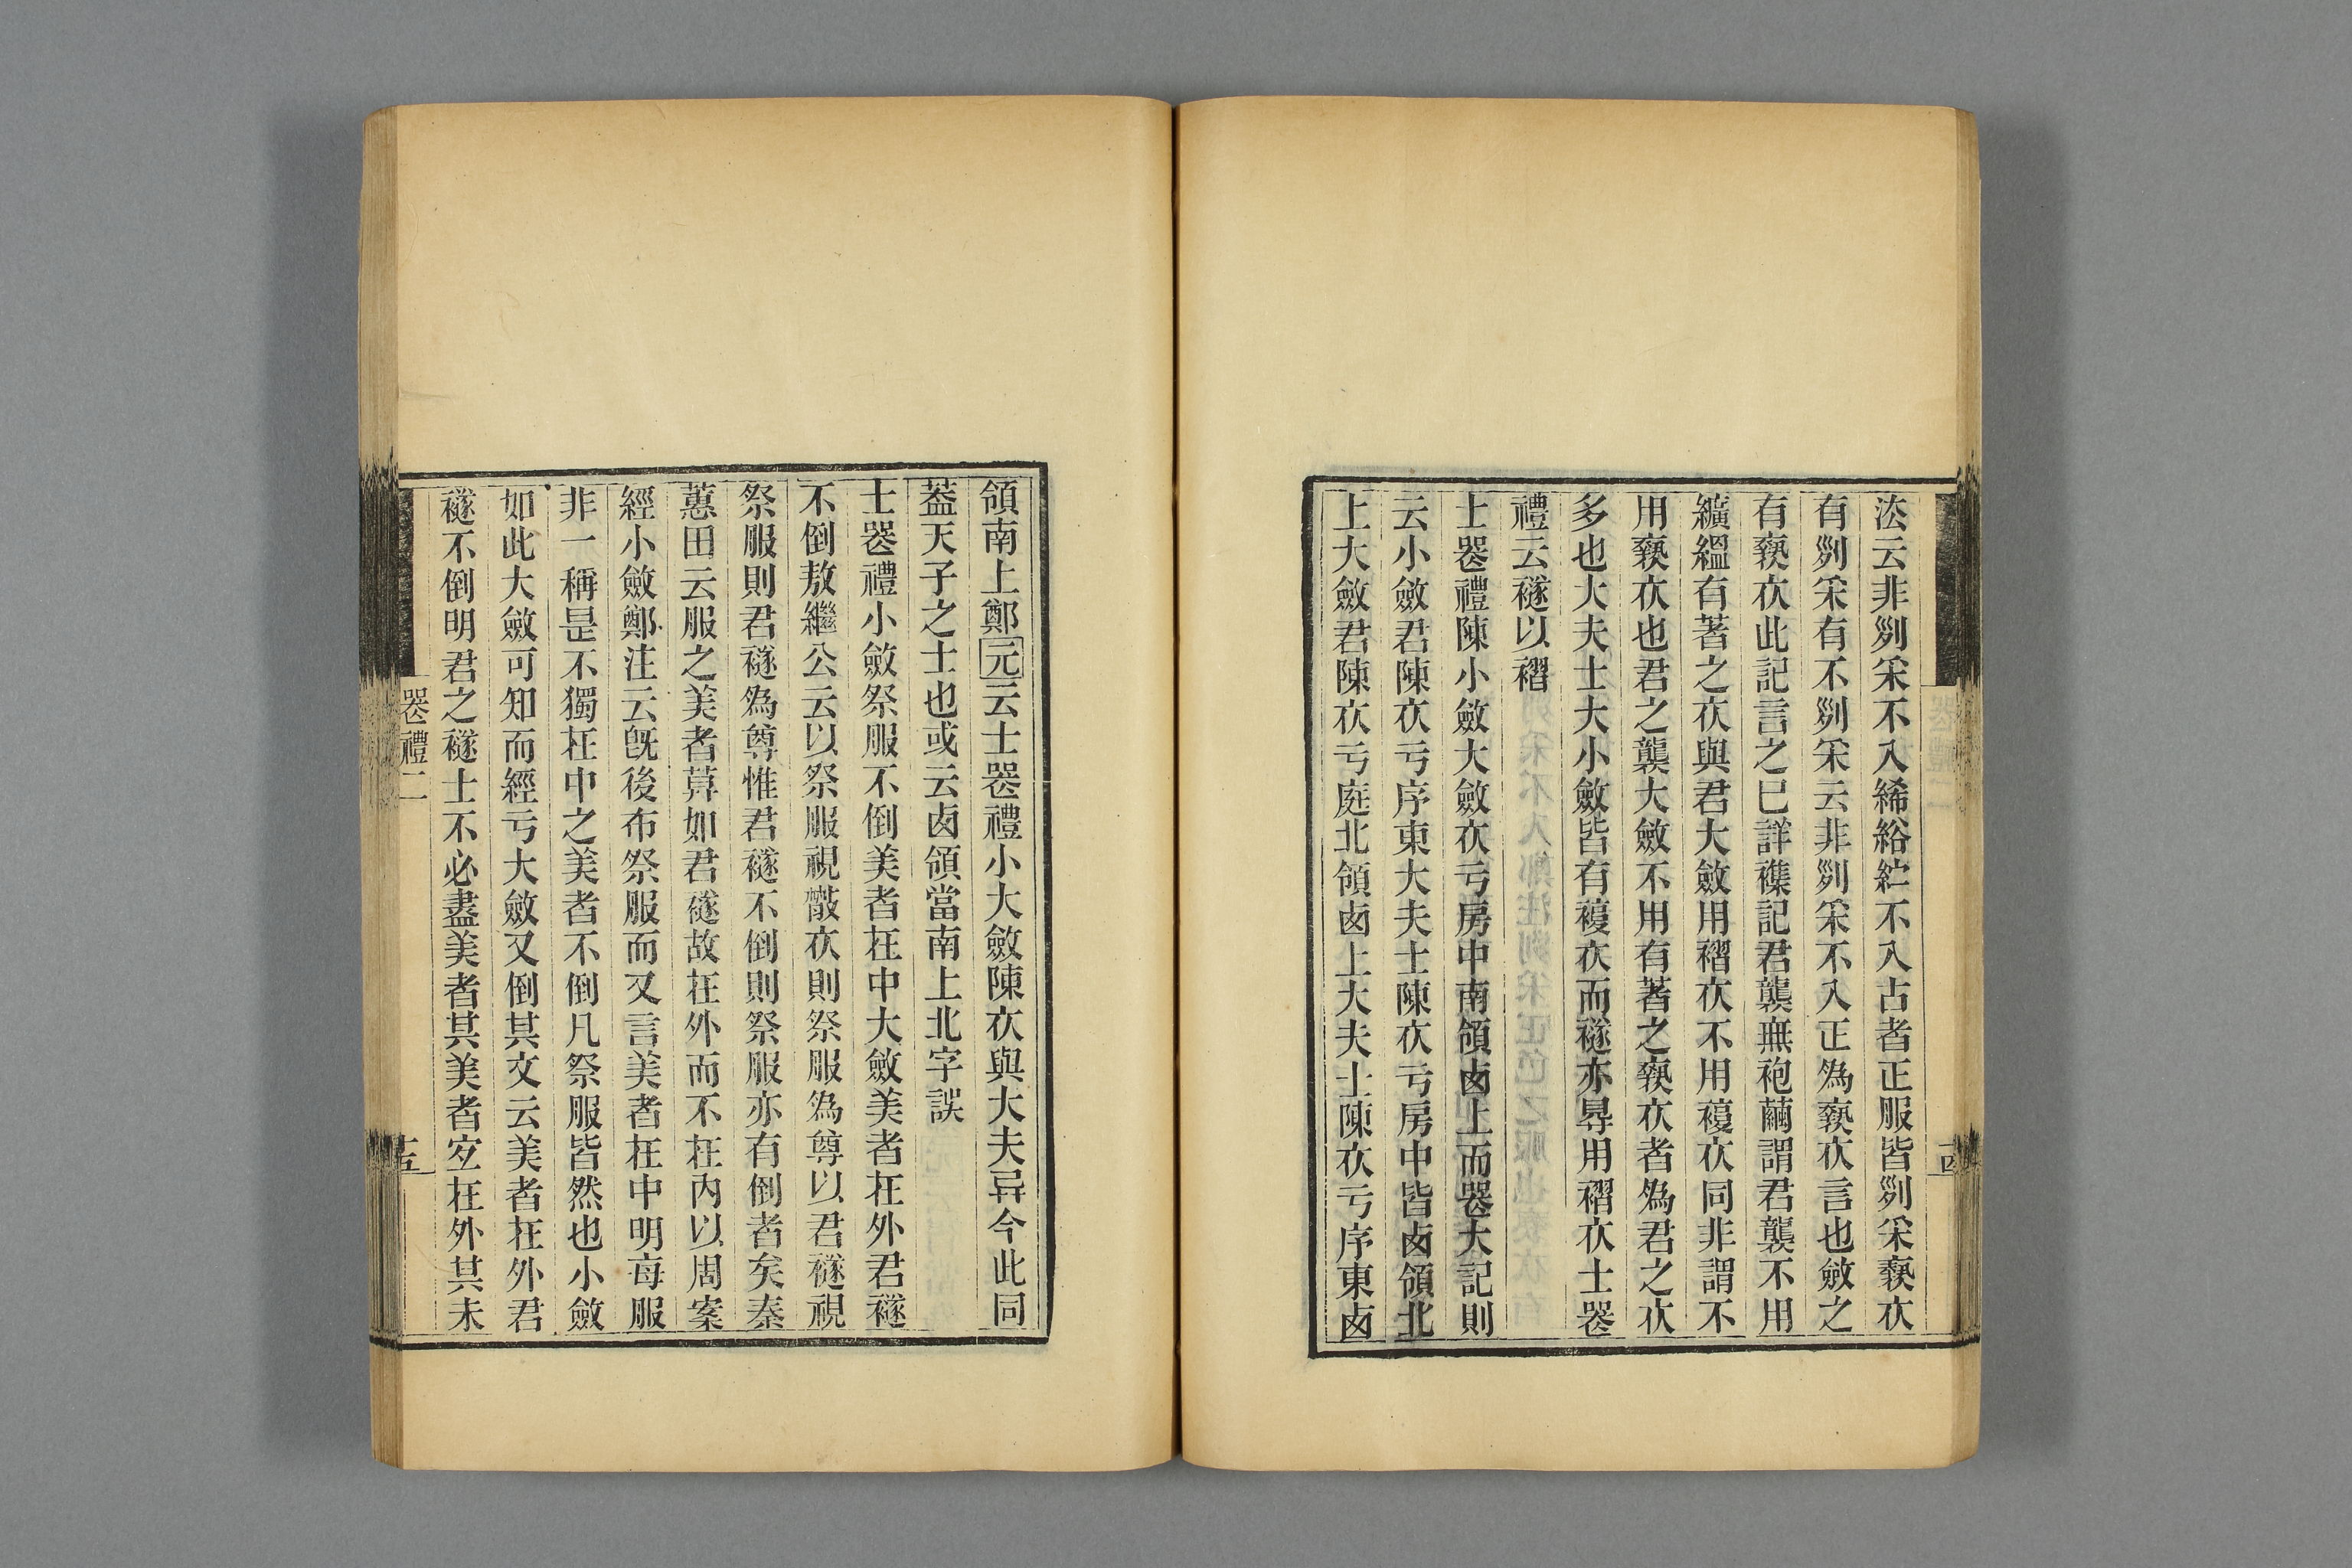 法云非列采不入絺綌紵不入古者正服皆列采褻衣
有列采有不列采云非列采不入正為褻衣言也斂之
有褻衣此記言之已詳襍記君襲無袍繭謂君襲不用
纊縕有著之衣與君大斂用褶衣不用複衣同非謂不
用褻衣也君之襲大斂不用有著之褻衣者為君之衣
多也大夫士大小斂皆有複衣而襚亦㝵用褶衣士喪
禮云襚以褶
士喪禮陳小斂大斂衣亏房中南領卥上而喪大記則
云小斂君陳衣亏序東大夫士陳衣亏房中皆卥領北
上大斂君陳衣亏庭北領卥上大夫士陳衣亏序東卥
領南上鄭元云士喪禮小大斂陳衣與大夫异今此同
葢天子之士也或云卥領當南上北字誤
士喪禮小斂祭服不倒美者在中大斂美者在外君襚
不倒敖繼公云以祭服視散衣則祭服為尊以君襚視
祭服則君襚為尊惟君襚不倒則祭服亦有倒者矣秦
蕙田云服之美者莫如君襚故在外而不在內以周案
經小斂鄭注云旣後布祭服而又言美者在中明每服
非一稱是不獨在中之美者不倒凡祭服皆然也小斂
如此大斂可知而經亏大斂又倒其文云美者在外君
襚不倒明君之襚士不必盡美者其美者㝎在外其未
喪禮二
十五